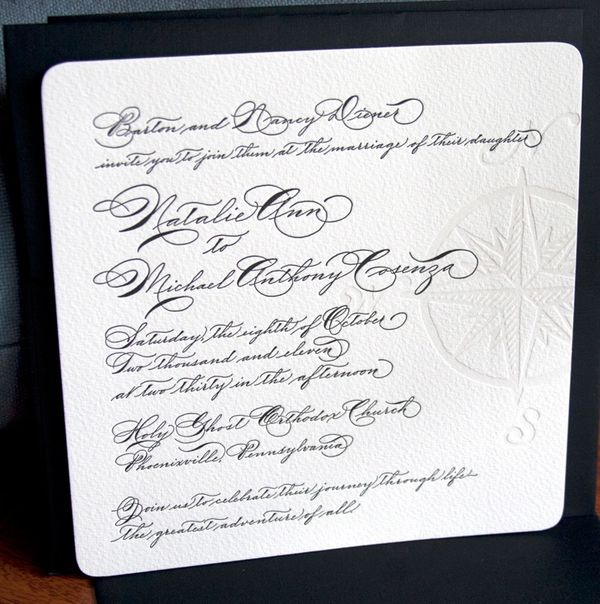 Barton and Nancy Diener
invite you to join them at the marriage of their daughter
Natalie Ann
to
Michael Anthony Cosenza
Saturday, the eighth of October
Two thousand and eleven
at two thirty in the afternoon
Holy Ghost Orthodox Church
Phoenixville, Pennsylvania
Join us to celebrate their journey through life
the greatest adventure of all
N
S